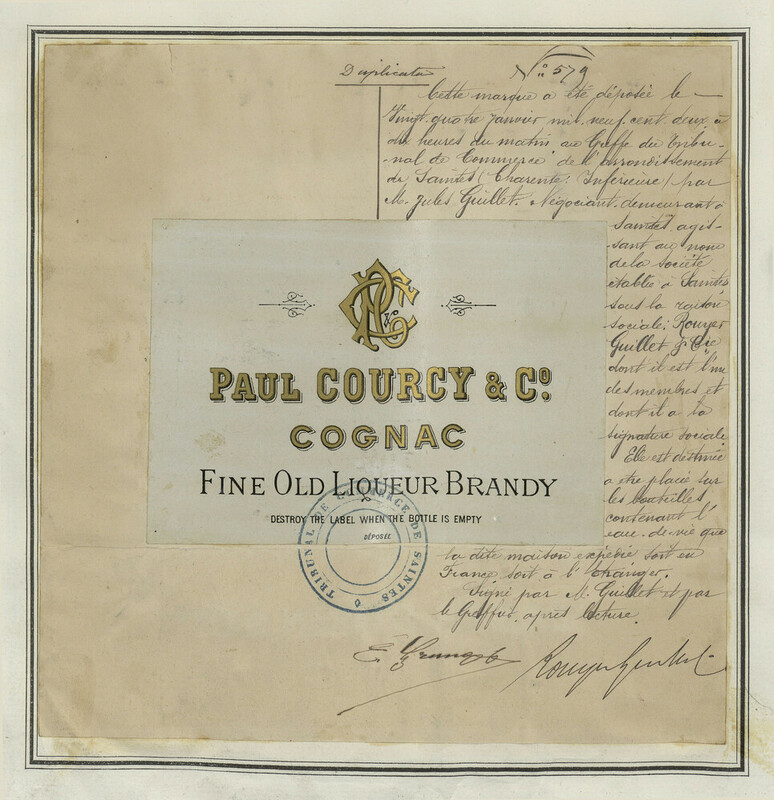 Duplicata
N° 579
Cette marque a été déposée le —
Vingt quatre janvier mil neuf cent deux à
dix heures du matin au Greffe du Tribu-
-nal de Commerce de l'arrondissement
de Saintes (Charente Inférieure) par
M. Jules Guillet. Négociant demeurant à
Saintes agis-
-sant au nom
de la société
établie à Saintes
sous la raison
sociale: Rouyer
Guillet & Cie
dont il est l'un
des membres et
dont il a la
signature sociale
Elle est destinée
a etre placée sur
les bouteilles
contenant l'
eau-de-vie que
la dite maison expédie soit en
France soit à l'étranger.
Signé par M. Guillet et par
le Greffier après lecture.
PRC
PAUL COURCY & Co.
COGNAC
FINE OLD LIQUEUR BRANDY
DESTROY THE LABEL WHEN THE BOTTLE IS EMPTY
DÉPOSÉE
TRIBUNAL DE COMMERCE DE SAINTES
Rouyer Guillet